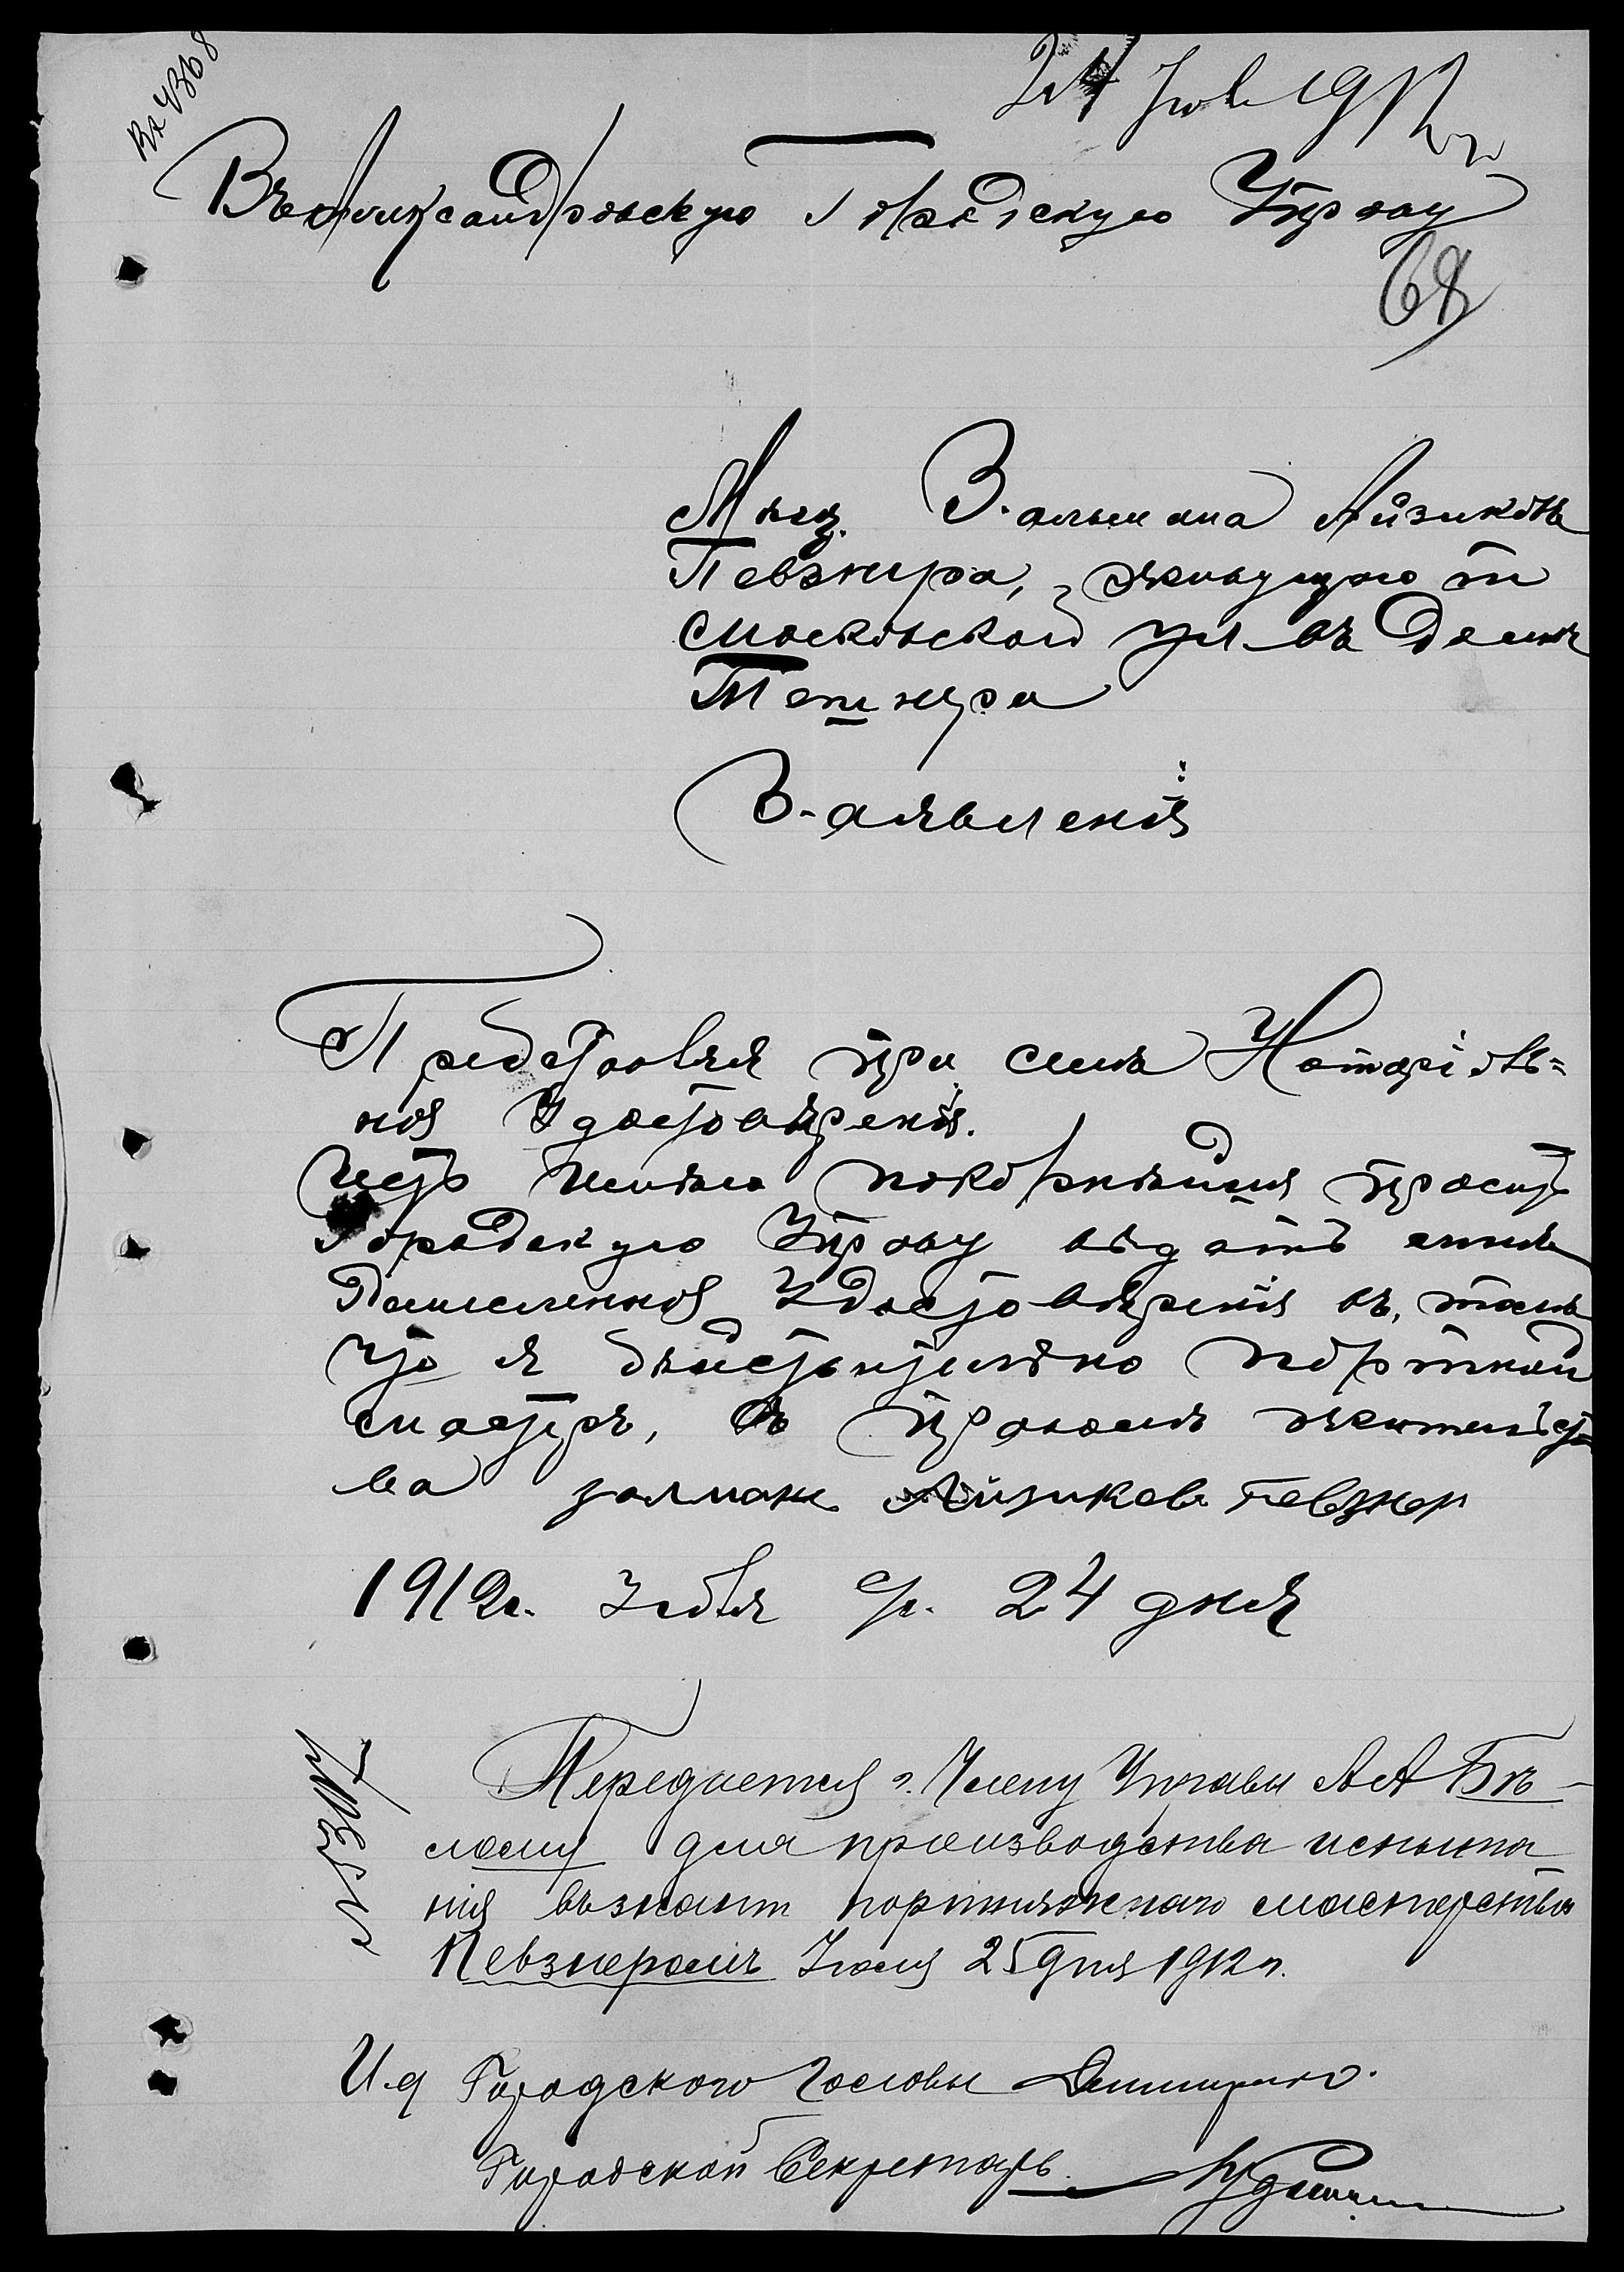 Вх 4368
24 Июль 1912 г.
Въ Александровскую Городскую Управу
68
Мѣщ. Залмана Айзиковъ
Певзнера, живущаго по
Московской ул въ Домѣ
Тетнера
Заявленія
Представляя при семъ Нотаріаль=
ноя Удостовѣренія.
Честь имѣю покорнѣйшя просить
Городскую Управу выдать мнѣ
Удостовѣренія въ томъ
что я дѣйствительно портной
мастеръ, въ правомъ жительст=
ва залман Айзиковъ Певзнер
1912 г. Іюля 24 дня
Передается г. Члену Управы А А Бѣ-
лому для производства испыта
нія въ знаніи портняжнаго мастерства
Певзнеромъ Іюля 25 дня 1912 г.
И.д Городского Головы
Городской Секретарь